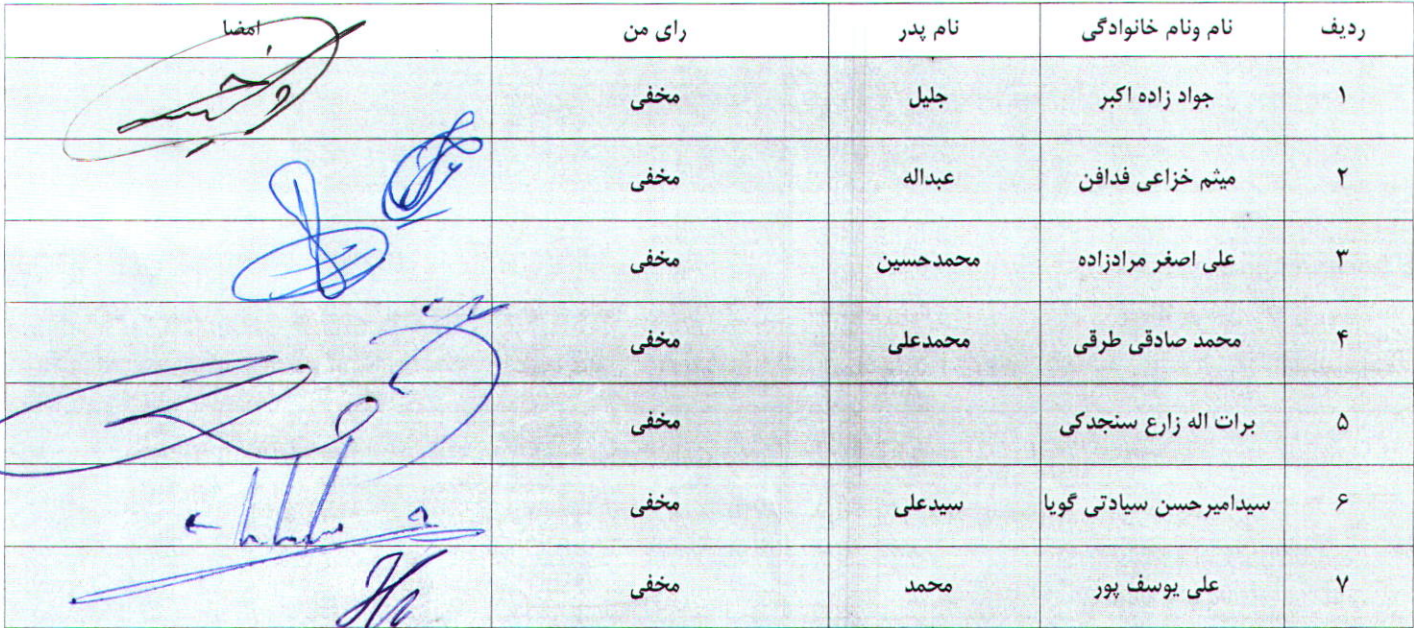 ردیف نام ونام خانوادگی نام پدر رای من امضا
۱ جواد زاده اکبر جلیل مخفی
۲ میثم خزاعی فدافن عبداله مخفی
۳ علی اصغر مرادزاده محمدحسین مخفی
۴ محمد صادقی طرقی محمدعلی مخفی
۵ برات اله زارع سنجدکی مخفی
۶ سیدامیرحسن سیادتی گویا سیدعلی مخفی
۷ علی یوسف پور محمد مخفی